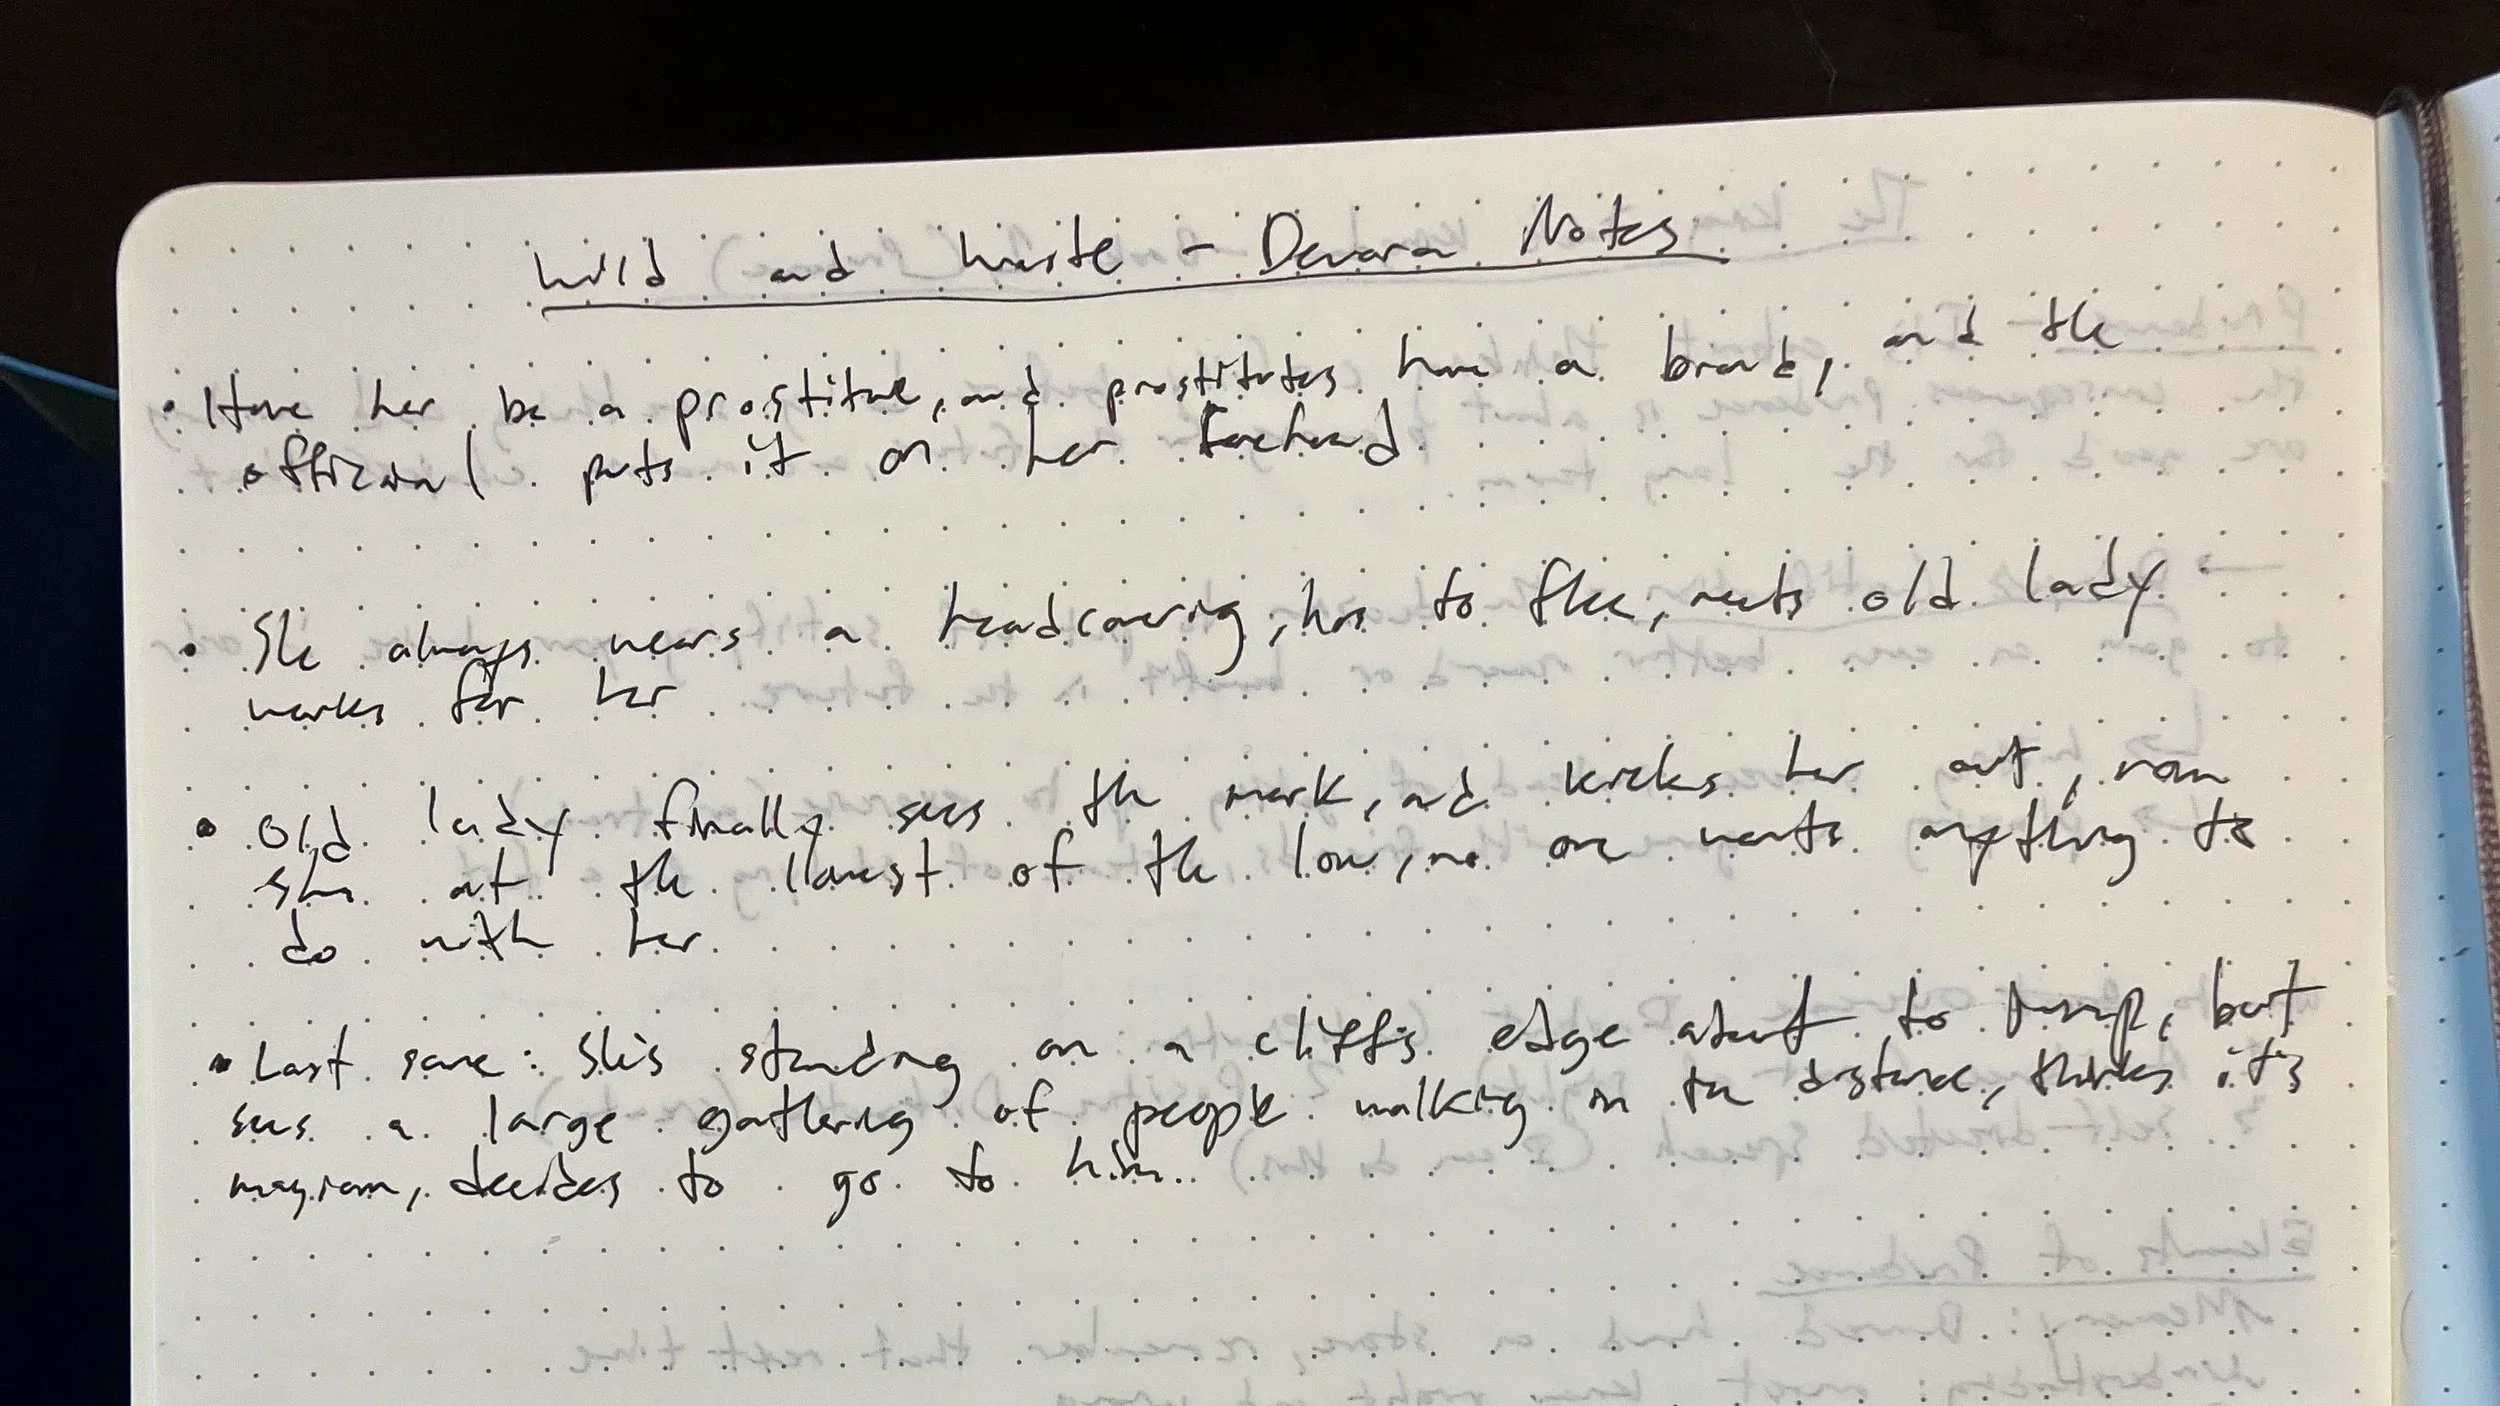 Wild and Waste - Devora Notes
• Have her be a prostitute, and prostitutes have a brand, and the
official puts it on her forehead
• She always wears a headcovering, has to flee, meets old lady
works for her
• Old lady finally sees the mark, and kicks her out, now
she at the lowest of the low, no one wants anything to
do with her
• Last scene: She's standing on a cliff's edge about to jump, but
sees a large gathering of people walking in the distance, thinks it's
decides to go to him